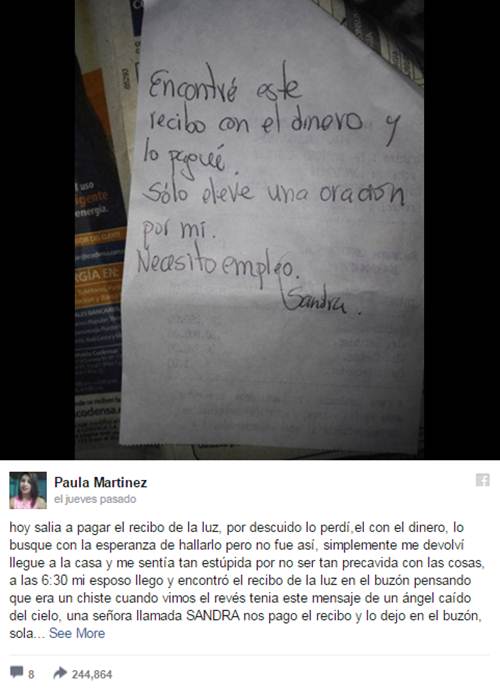 Encontré este
recibo con el dinero y
lo pagué.
Sólo eleve una oración
por mí.
Necesito empleo.
Sandra.
l uso
igente
energía.
GÍA EN:
codensa
Paula Martinez
el jueves pasado
hoy salia a pagar el recibo de la luz, por descuido lo perdí,el con el dinero, lo
busque con la esperanza de hallarlo pero no fue así, simplemente me devolví
llegue a la casa y me sentía tan estúpida por no ser tan precavida con las cosas,
a las 6:30 mi esposo llego y encontró el recibo de la luz en el buzón pensando
que era un chiste cuando vimos el revés tenia este mensaje de un ángel caído
del cielo, una señora llamada SANDRA nos pago el recibo y lo dejo en el buzón,
sola... See More
8 244,864